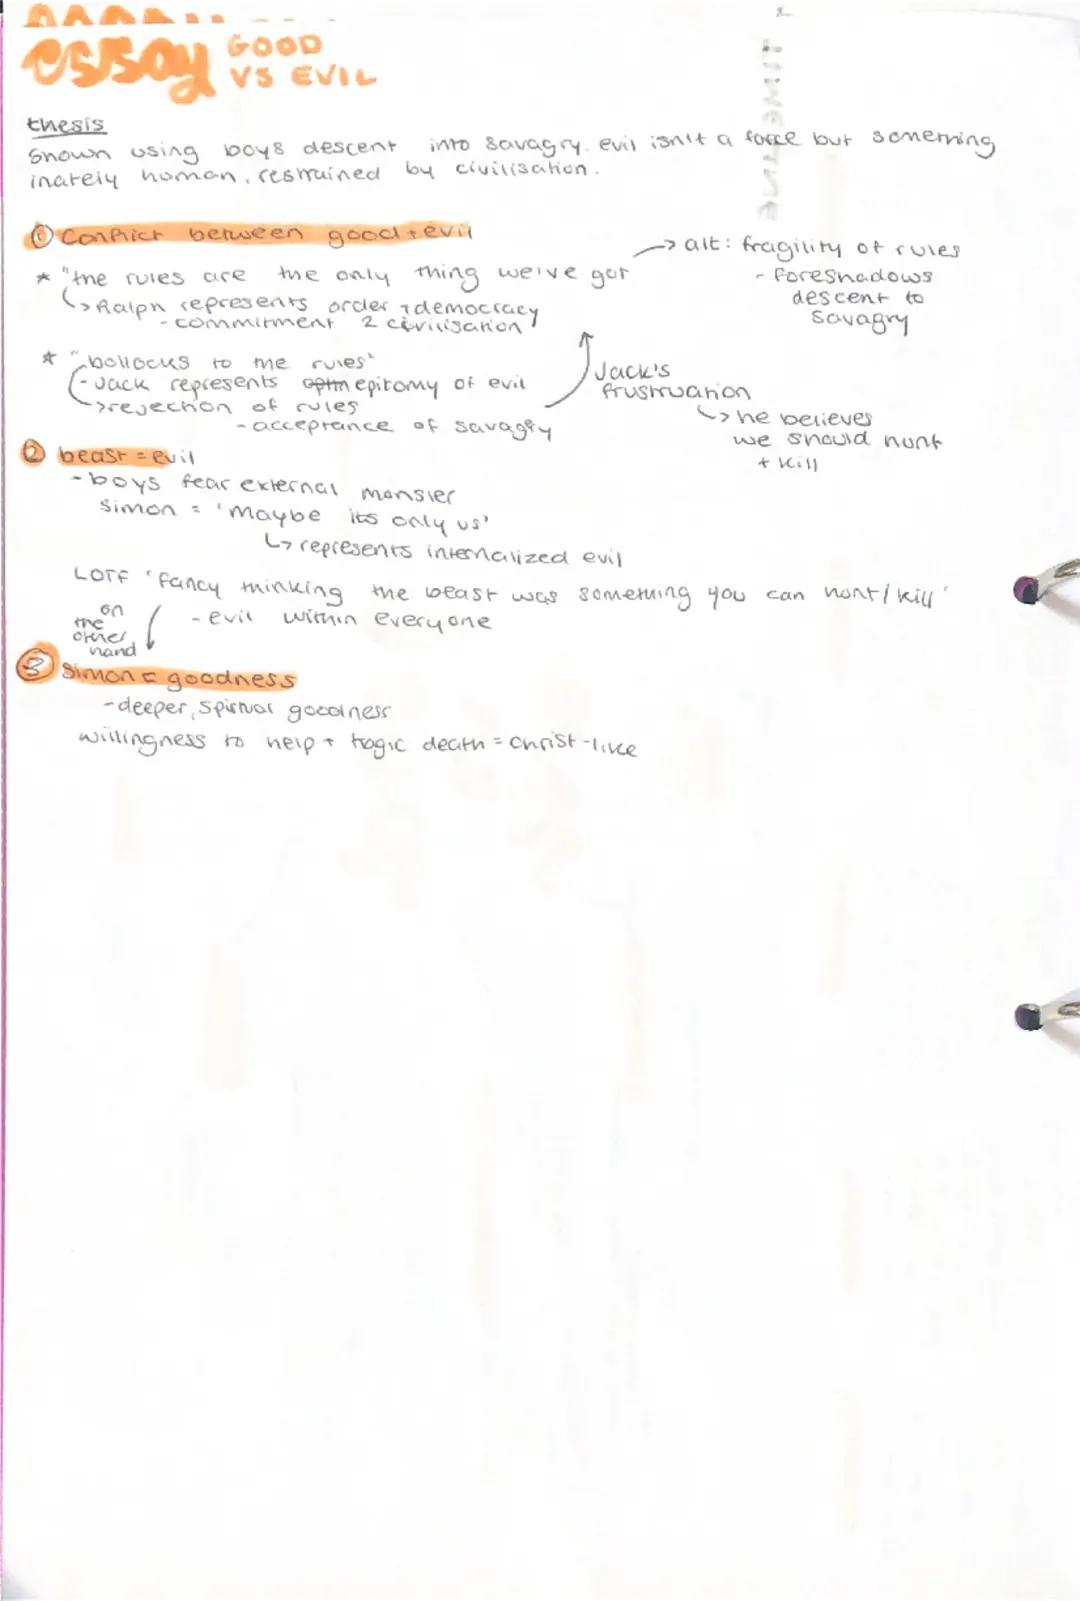 essay GOOD
VS EVIL
thesis
Shown using boys descent into savagry. evil isn't a force but something
inately human, restrained by civilisation.
① Conflict between good + evil
* "the rules are the only thing we've got
↳ Ralph represents order + democracy
- commitment 2 civilisation
→ alt: fragility of rules
- foreshadows
descent to
savagry
* "bollocks to the rules"
- Jack represents epitomy of evil
→ rejection of rules
- acceptance of savagry
Jack's
frustruation
↳ he believes
we should hunt
+ kill
② beast = evil
- boys fear external monster
Simon = 'maybe its only us'
↳ represents internalized evil
LOTF 'fancy thinking the beast was something you can hunt/kill'
- evil within everyone
on
the
other
hand
③ Simon = goodness
- deeper, spirtual goodness
willingness to help + tragic death = Christ-like
TIMELINE